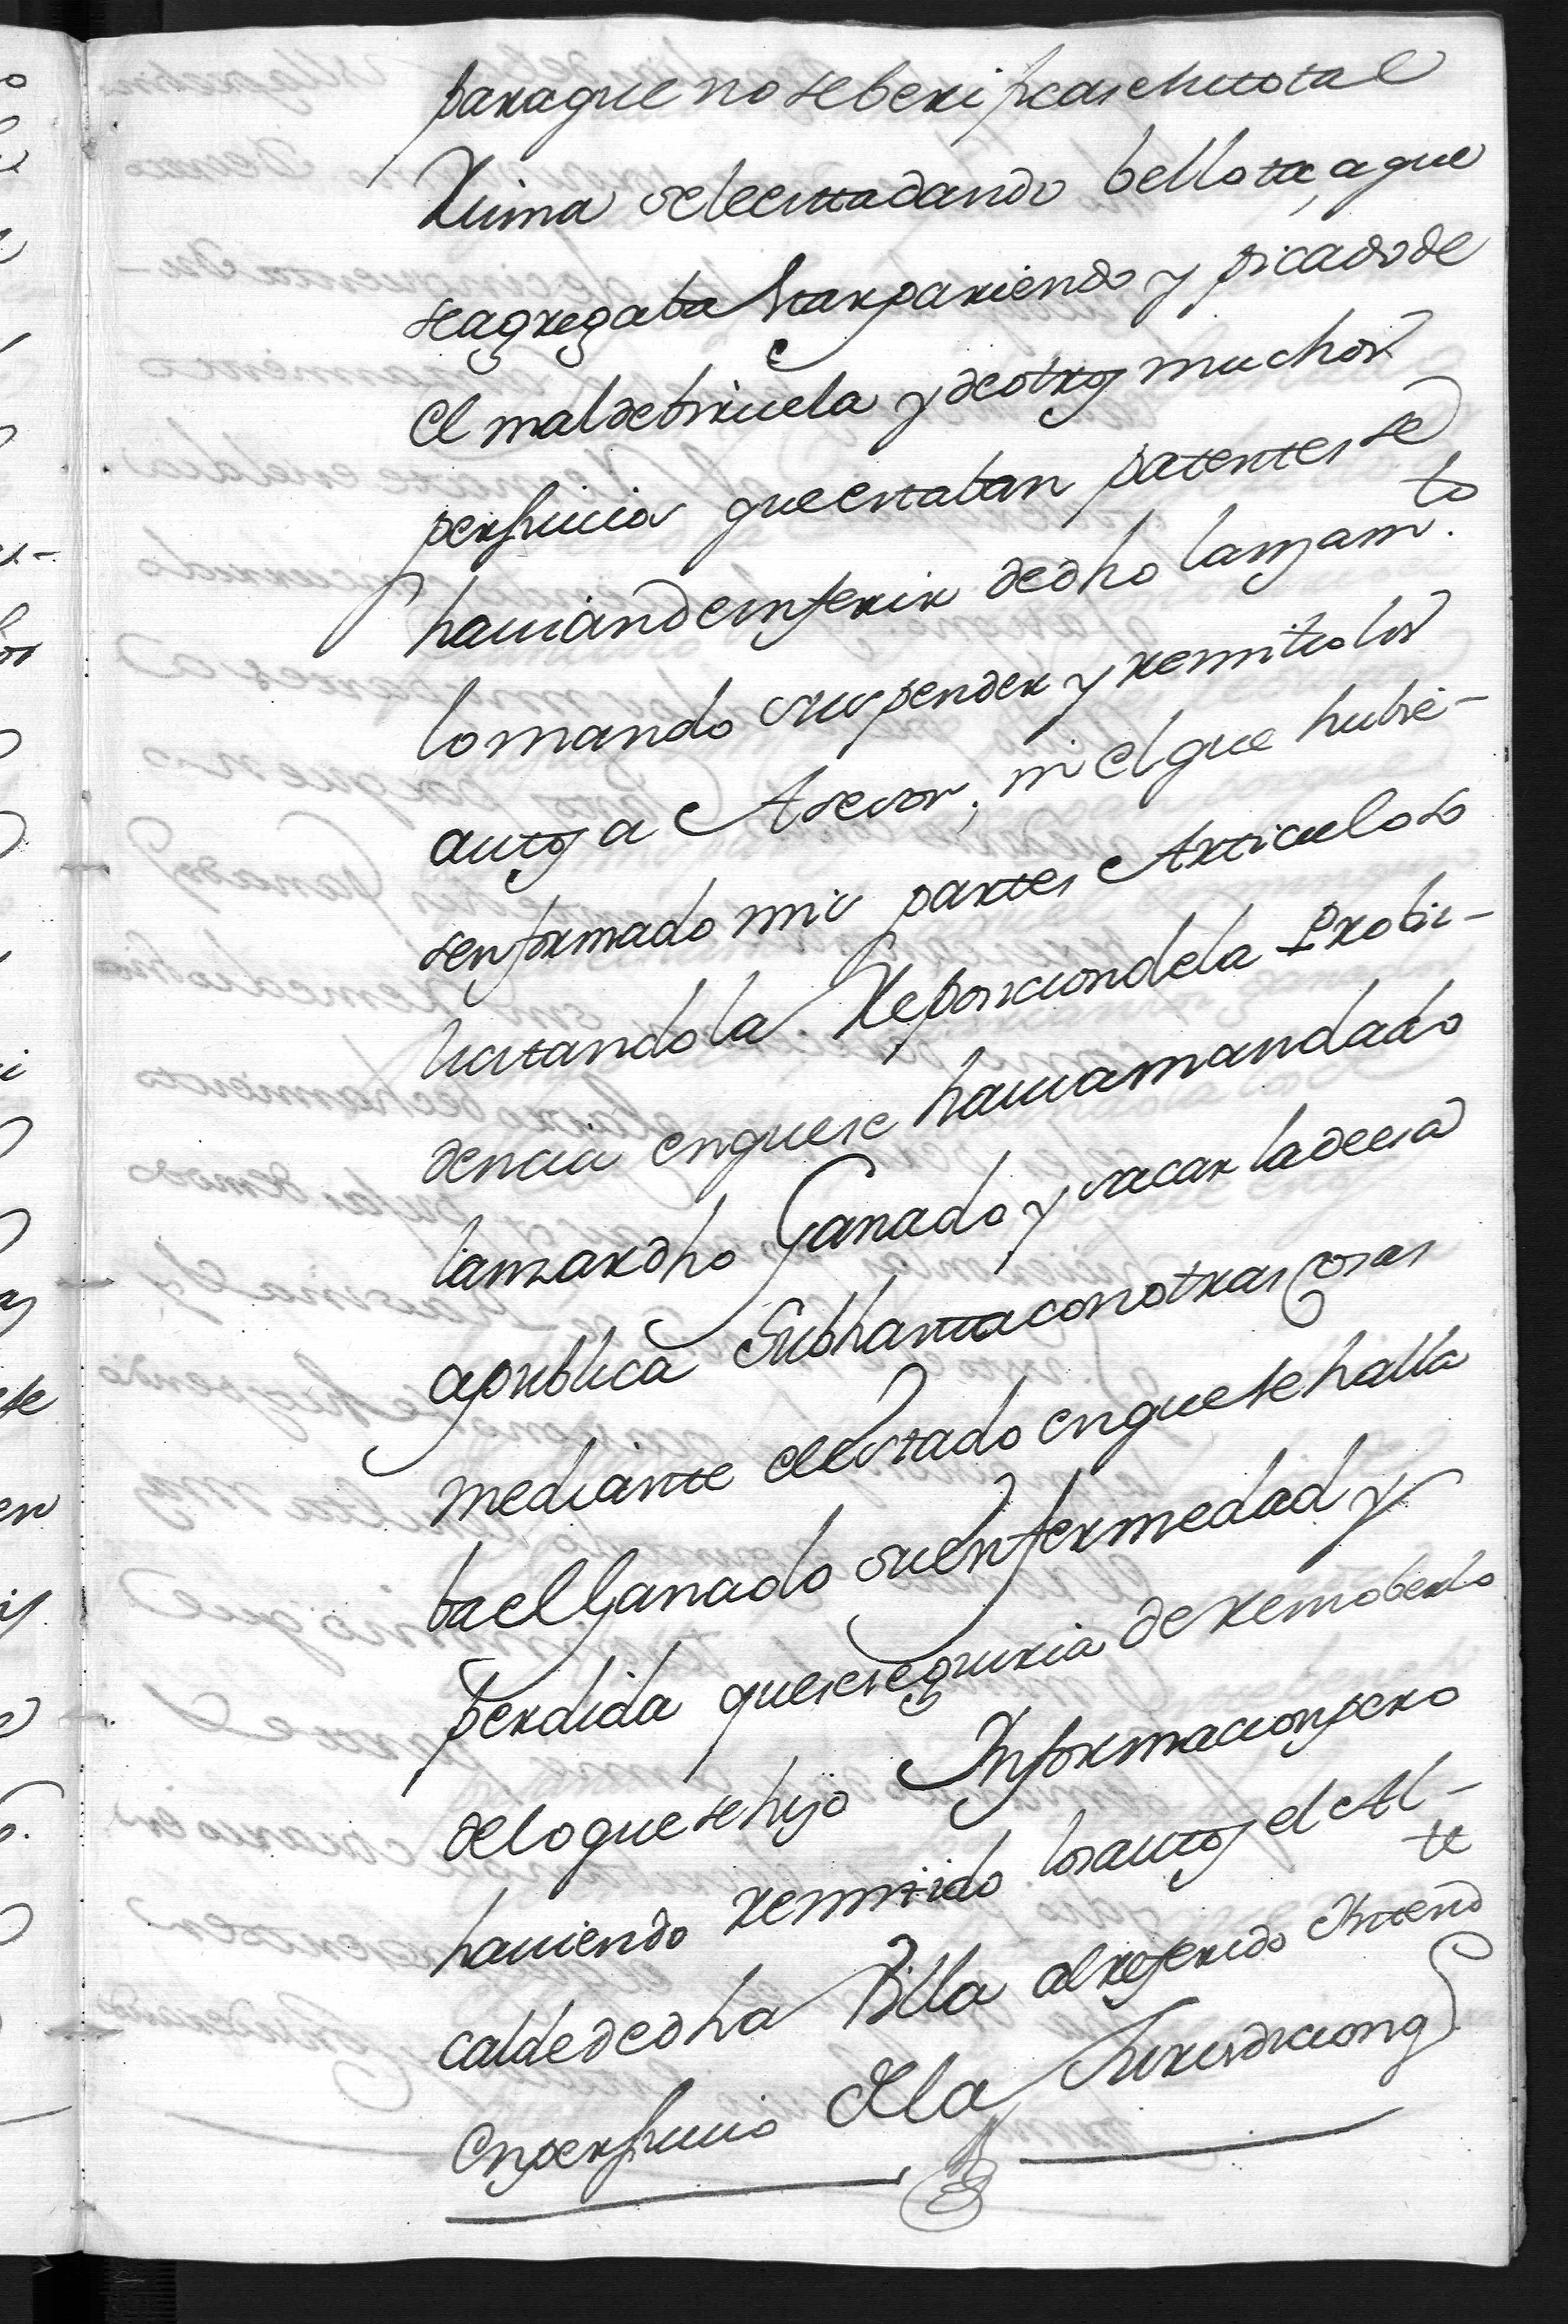 para que no se berificase su total
Ruina se le estta dando bellota, a que
se agregaba star pariendo y picado de
el mal de biruela y de otros muchos
perjuicios que estaban patentes se
havian de inferir de dho lanzam.to
lo mando suspender y remitio los
autos a Asesor; ni el que hubie-
sen formado mis partes Articulo so
licitando la Reposicion de la Probi-
dencia en que se havia mandado
lanzar dho Ganado y sacar la deesa
a publica Subhasta con otras cosas
mediante el estado en que se halla
ba el Ganado su enfermedad y
perdida que se seguiria de remoberlo
de lo que se hizo Informacion pero
haviendo remitido los autos el Al-
calde de dha Villa al referido Intend.te
en perjuicio de la Jurisdicion q